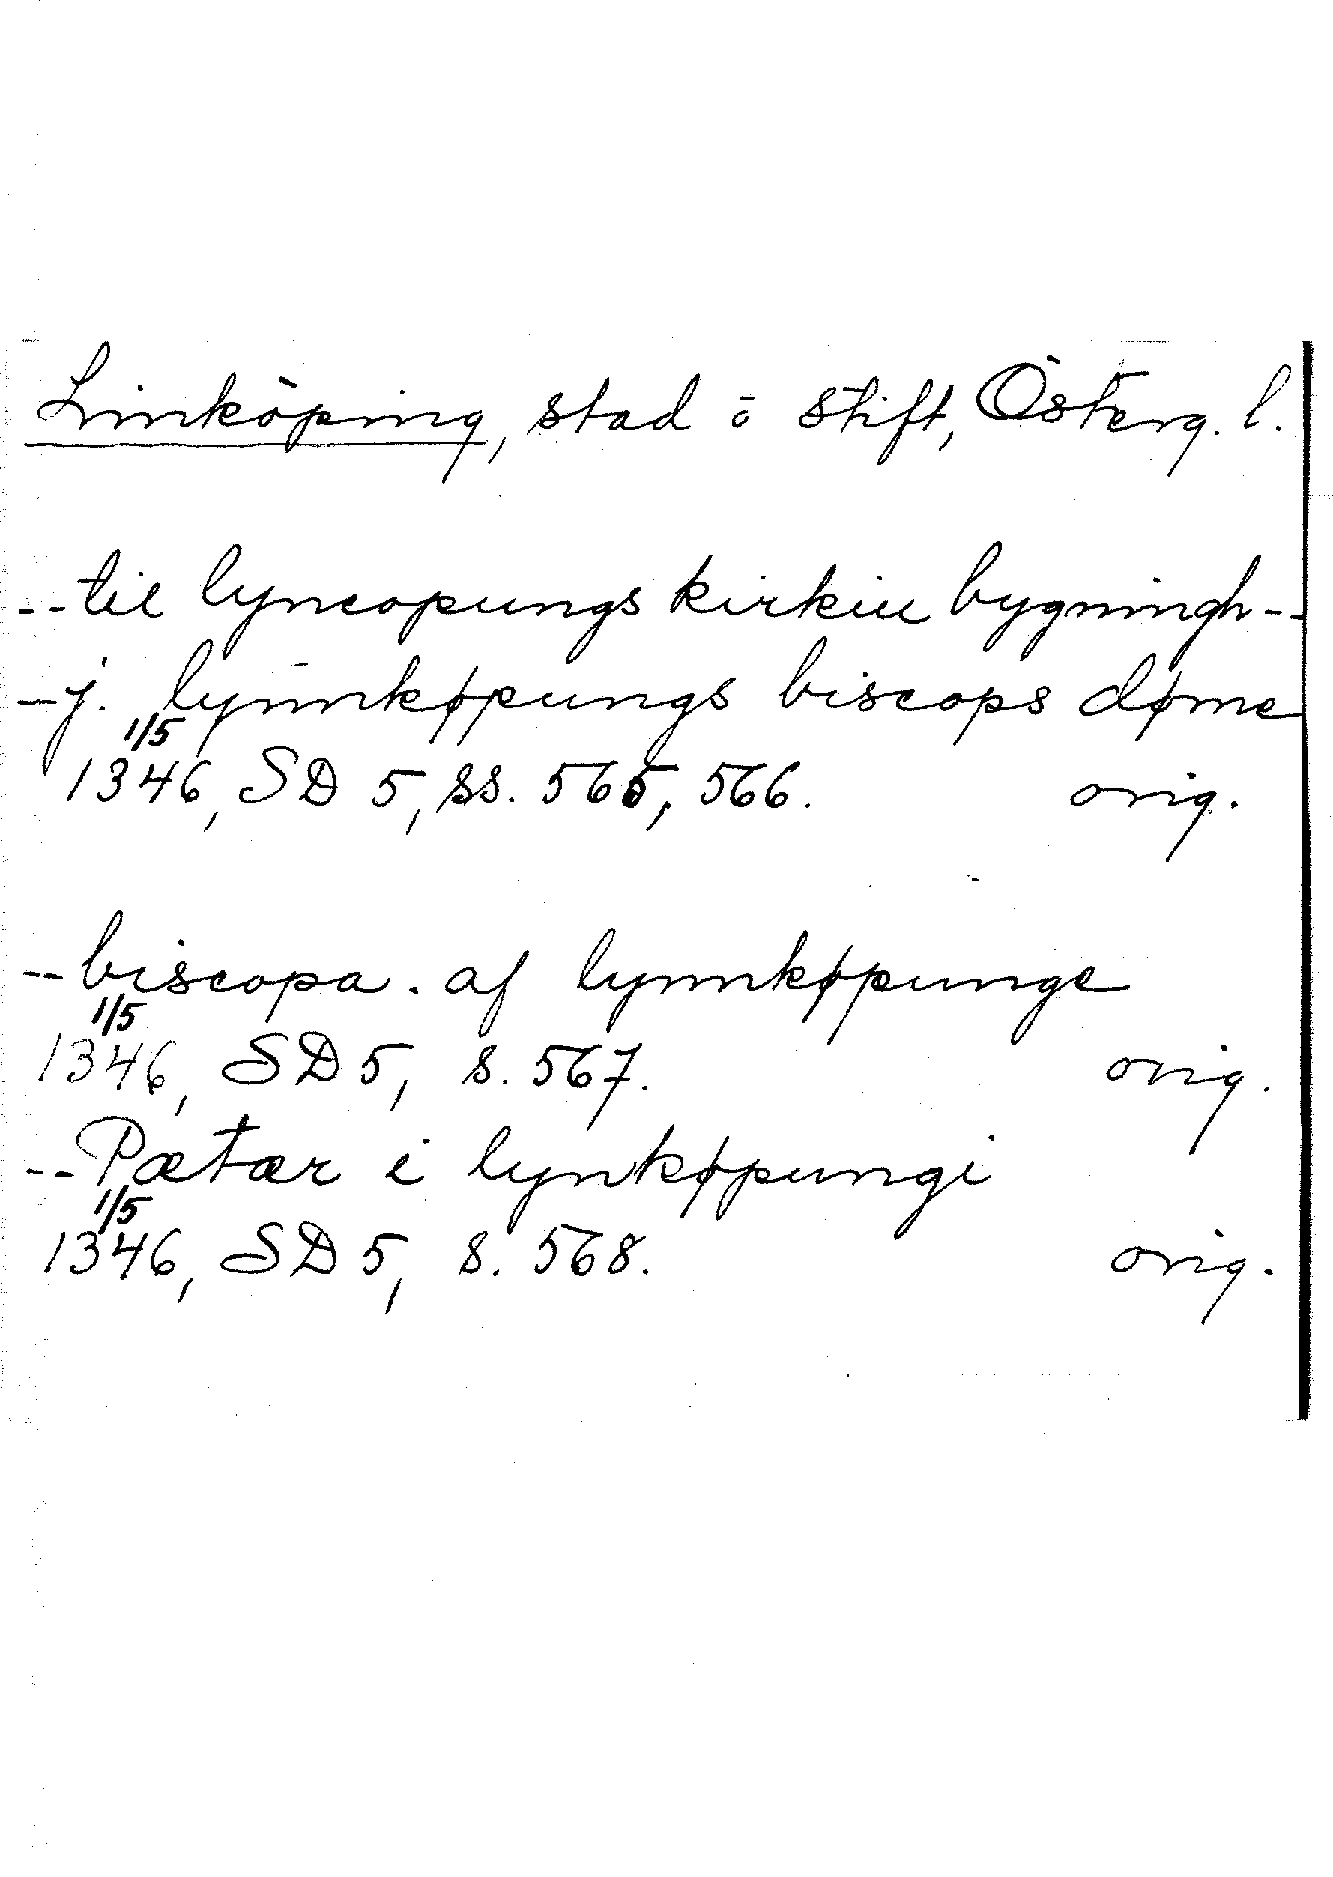 Linköping, stad ō stift, Österg. l.
--til lyncopungs kirkiu bygningh--
-j. lynnkøpungs biscops døme
1/5
1346, SD 5, ss. 565, 566. orig.
--biscopa. af lynnkøpunge
1/5
1346, SD 5, s. 567. orig.
--Pætær i lynkøpungi
1/5
1346, SD 5, s. 568. orig.